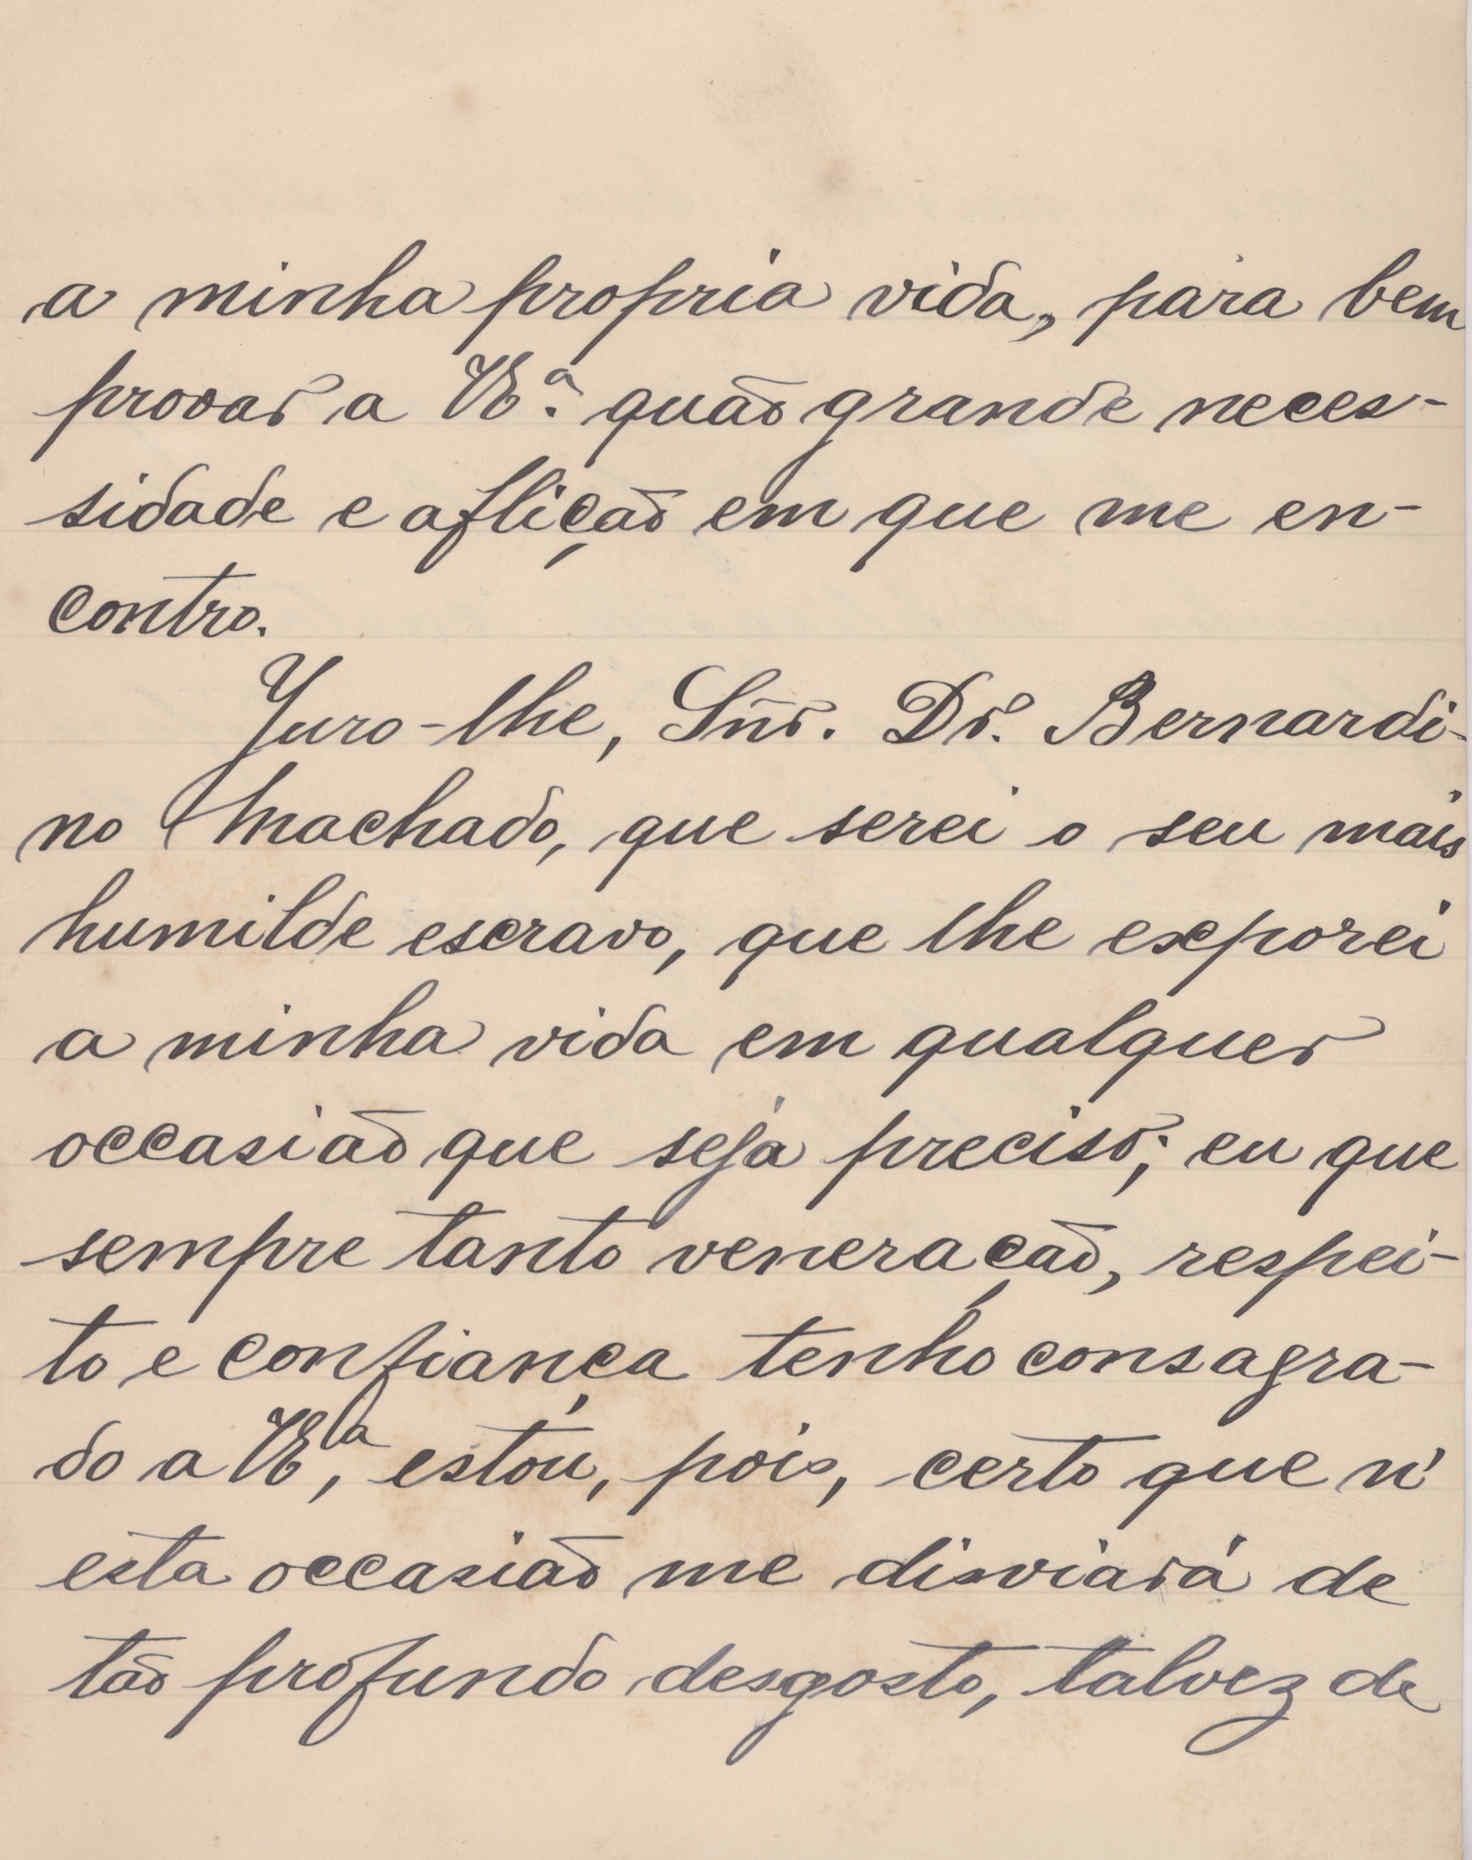 a minha propria vida, para bem
provar a VE.ª quão grande neces-
sidade e aflição em que me en-
contro.
Juro-lhe, Sñr. Dr. Bernardi-
no Machado, que serei o seu mais
humilde escravo, que lhe exporei
a minha vida em qualquer
occasião que seja preciso; eu que
sempre tanto veneração, respei-
to e confiança tenho consagra-
do a VEª, estou, pois, certo que n'
esta occasião me disviará de
tão profundo desgosto, talvez de